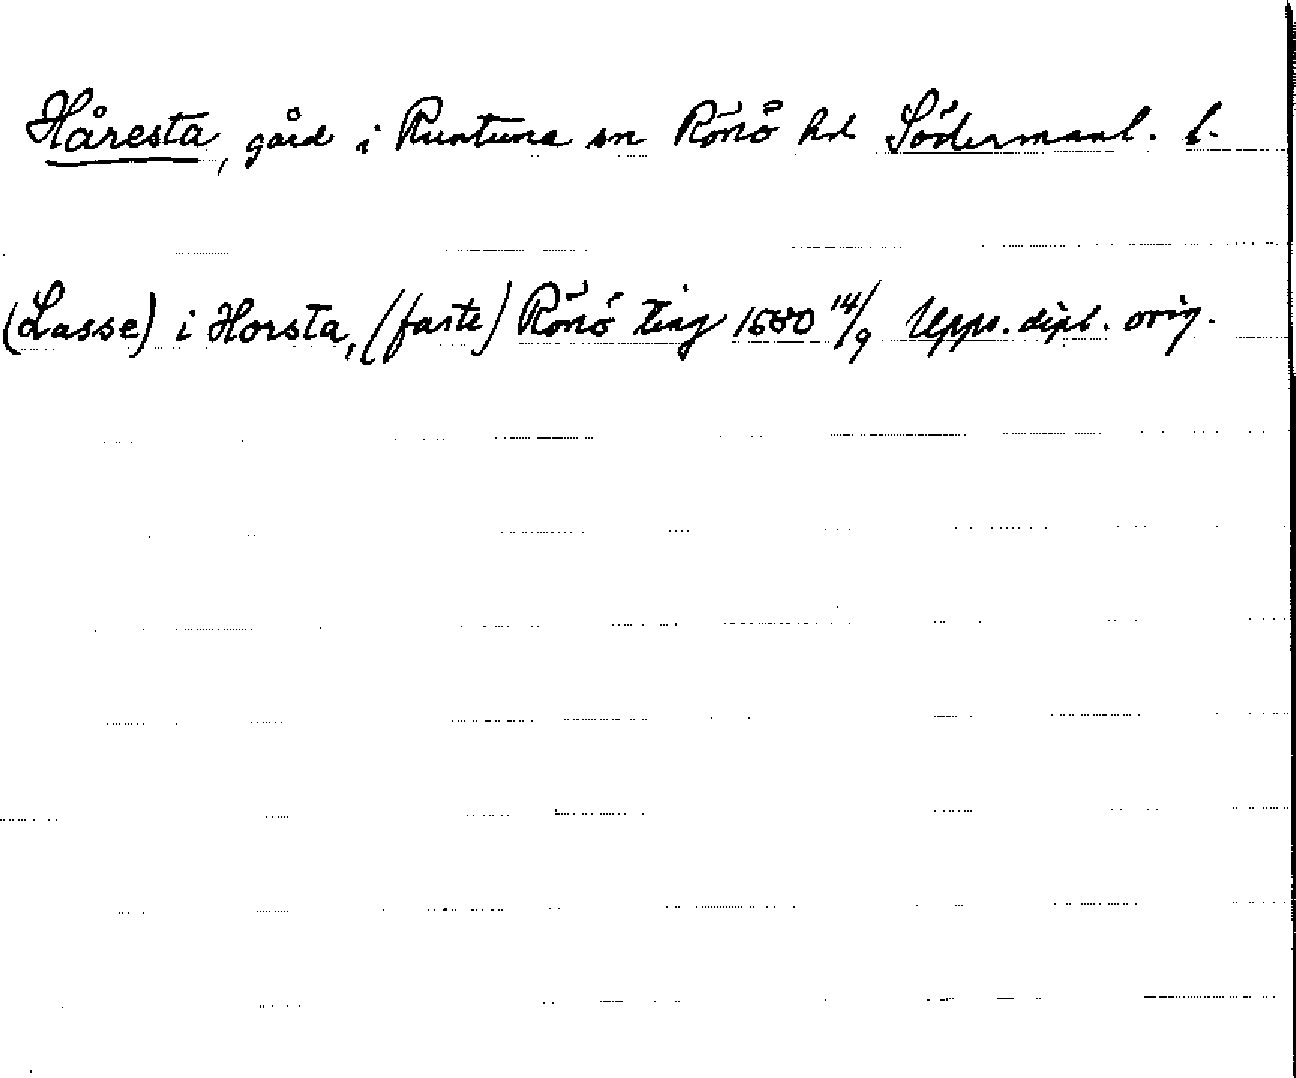 Håresta, gård i Runtuna sn Rönö hd Södermanl. l.
(Lasse) i Horsta, (faste) Rönö ting 1580 14/9 Upps. dipl. orig.